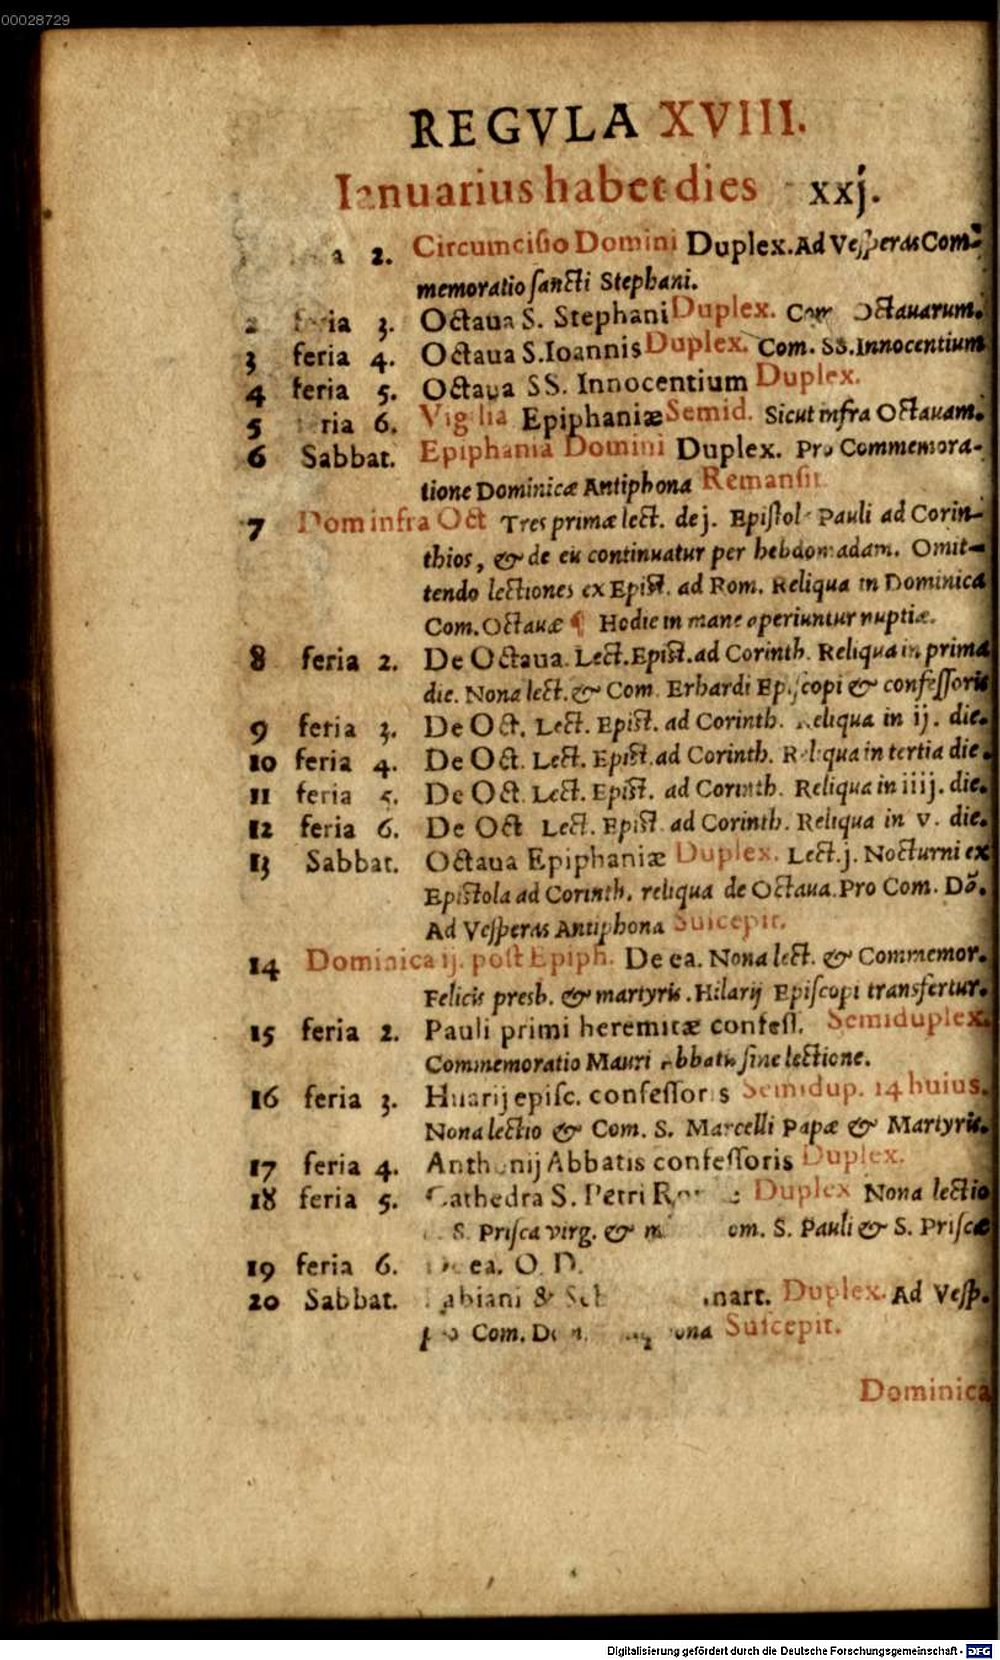 00028729
REGVLA XVIII.
Ianuarius habet dies xxj.
2. Circumcisio Domini Duplex. Ad Vesperas Com-
memoratio sancti Stephani.
2 feria 3. Octaua S. Stephani Duplex. Com Octauarum.
3 feria 4. Octaua S. Ioannis Duplex. Com. SS. Innocentium
4 feria 5. Octaua SS. Innocentium Duplex.
5 feria 6. Vigilia Epiphaniæ Semid. Sicut infra Octauam.
6 Sabbat. Epiphania Domini Duplex. Pro Commemora-
tione Dominicæ Antiphona Remansit
7 Dom infra Oct Tres primæ lect. de j. Epistol Pauli ad Corin-
thios, & de ea continuatur per hebdomadam. Omit-
tendo lectiones ex Epist. ad Rom. Reliqua in Dominica
Com. Octauæ ¶ Hodie in mane operiuntur nuptiæ.
8 feria 2. De Octaua. Lect. Epist. ad Corinth. Reliqua in prima
die. Nona lect. & Com. Erhardi Episcopi & confessoris
9 feria 3. De Oct. Lect. Epist. ad Corinth. Reliqua in ij. die.
10 feria 4. De Oct. Lect. Epist. ad Corinth. Reliqua in tertia die.
11 feria 5. De Oct. Lect. Epist. ad Corinth. Reliqua in iiij. die.
12 feria 6. De Oct Lect. Epist. ad Corinth. Reliqua in v. die.
13 Sabbat. Octaua Epiphaniæ Duplex. Lect. j. Nocturni ex
Epistola ad Corinth. reliqua de Octaua. Pro Com. Dõ.
Ad Vesperas Antiphona Suscepit.
14 Dominica ij. post Epiph. De ea. Nona lect. & Commemor.
Felicis presb. & martyris. Hilarij Episcopi transfertur.
15 feria 2. Pauli primi heremitæ confess. Semiduplex.
Commemoratio Mauri abbatis sine lectione.
16 feria 3. Hilarij episc. confessoris Semidup. 14 huius.
Nona lectio & Com. S. Marcelli Papæ & Martyris.
17 feria 4. Anthonij Abbatis confessoris Duplex.
18 feria 5. Cathedra S. Petri Duplex Nona lectio
S. Prisca virg. & om. S. Pauli & S. Priscæ
19 feria 6. ea. O. D.
20 Sabbat. Fabiani & mart. Duplex. Ad Vesp.
Com. Suscepit.
Dominica
Digitalisierung gefördert durch die Deutsche Forschungsgemeinschaft - DFG